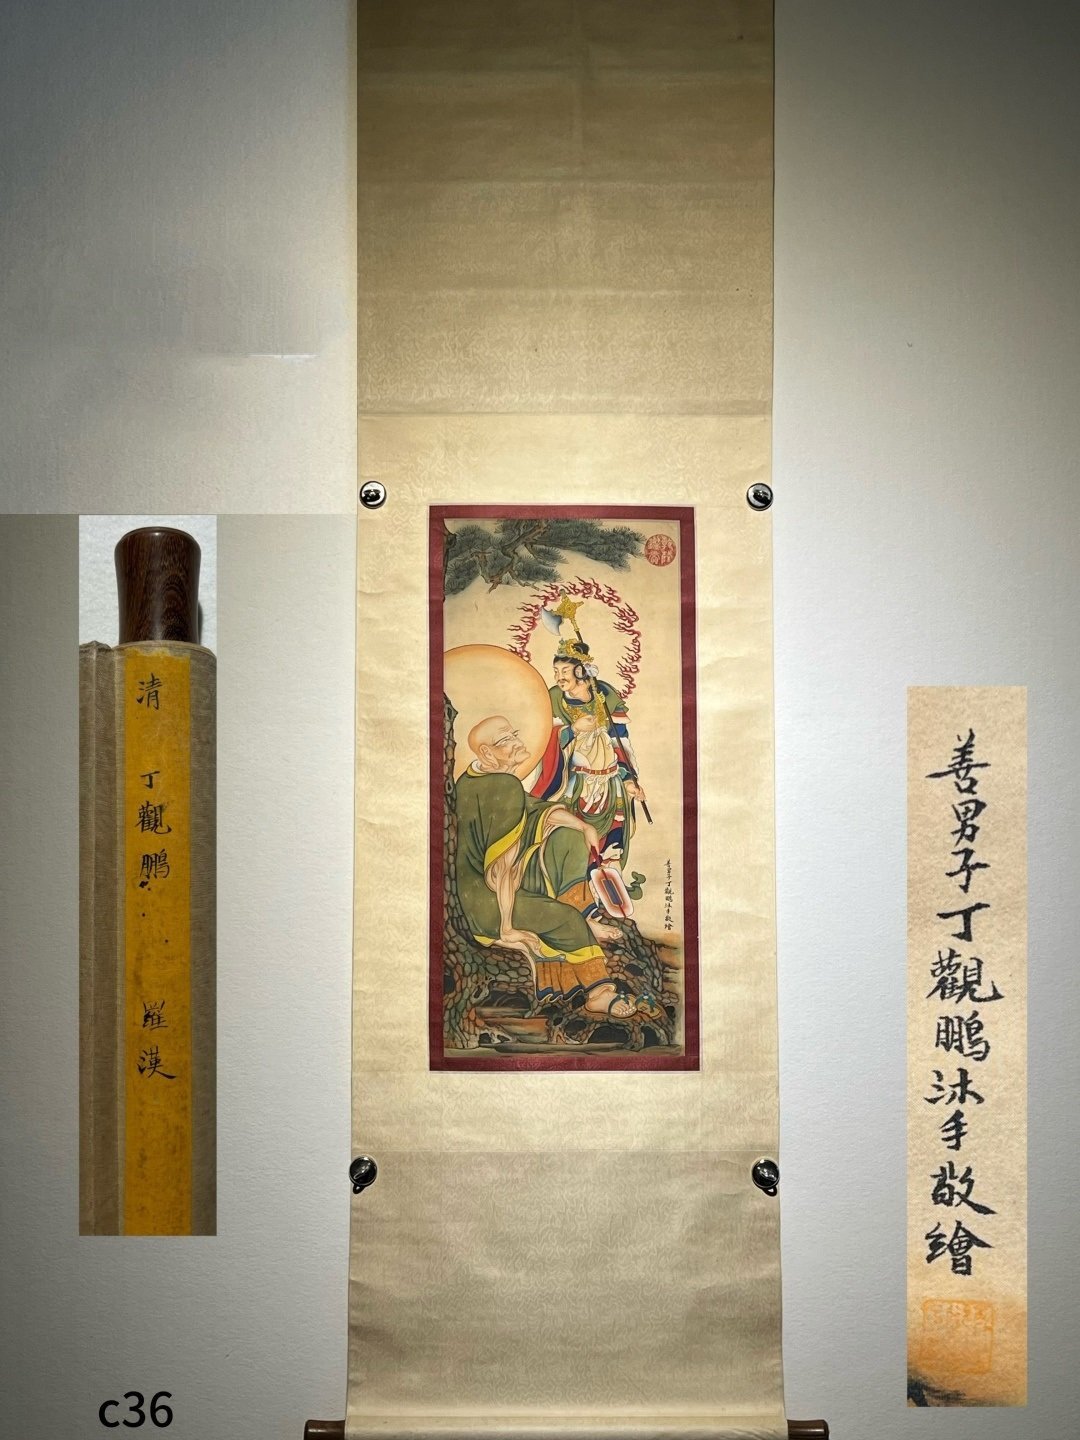 清 丁觀鵬 羅漢
善男子丁觀鵬沐手敬繪
善男子丁觀鵬沐手敬繪
c36